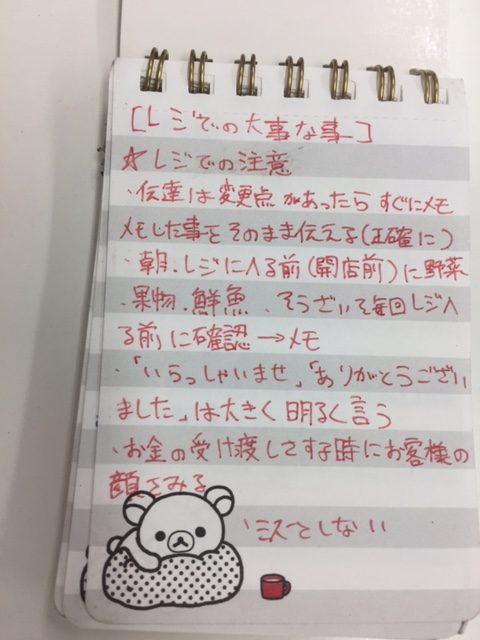 [レジでの大事な事]
☆レジでの注意
・伝達は変更点があったらすぐにメモ
メモした事をそのまま伝える(正確に)
・朝、レジに入る前(開店前)に野菜
・果物、鮮魚、そうざいを毎回レジ入
る前に確認→メモ
・「いらっしゃいませ」「ありがとうござい
ました」は大きく明るく言う
・お金の受け渡しをする時にお客様の
顔をみる
ミスをしない